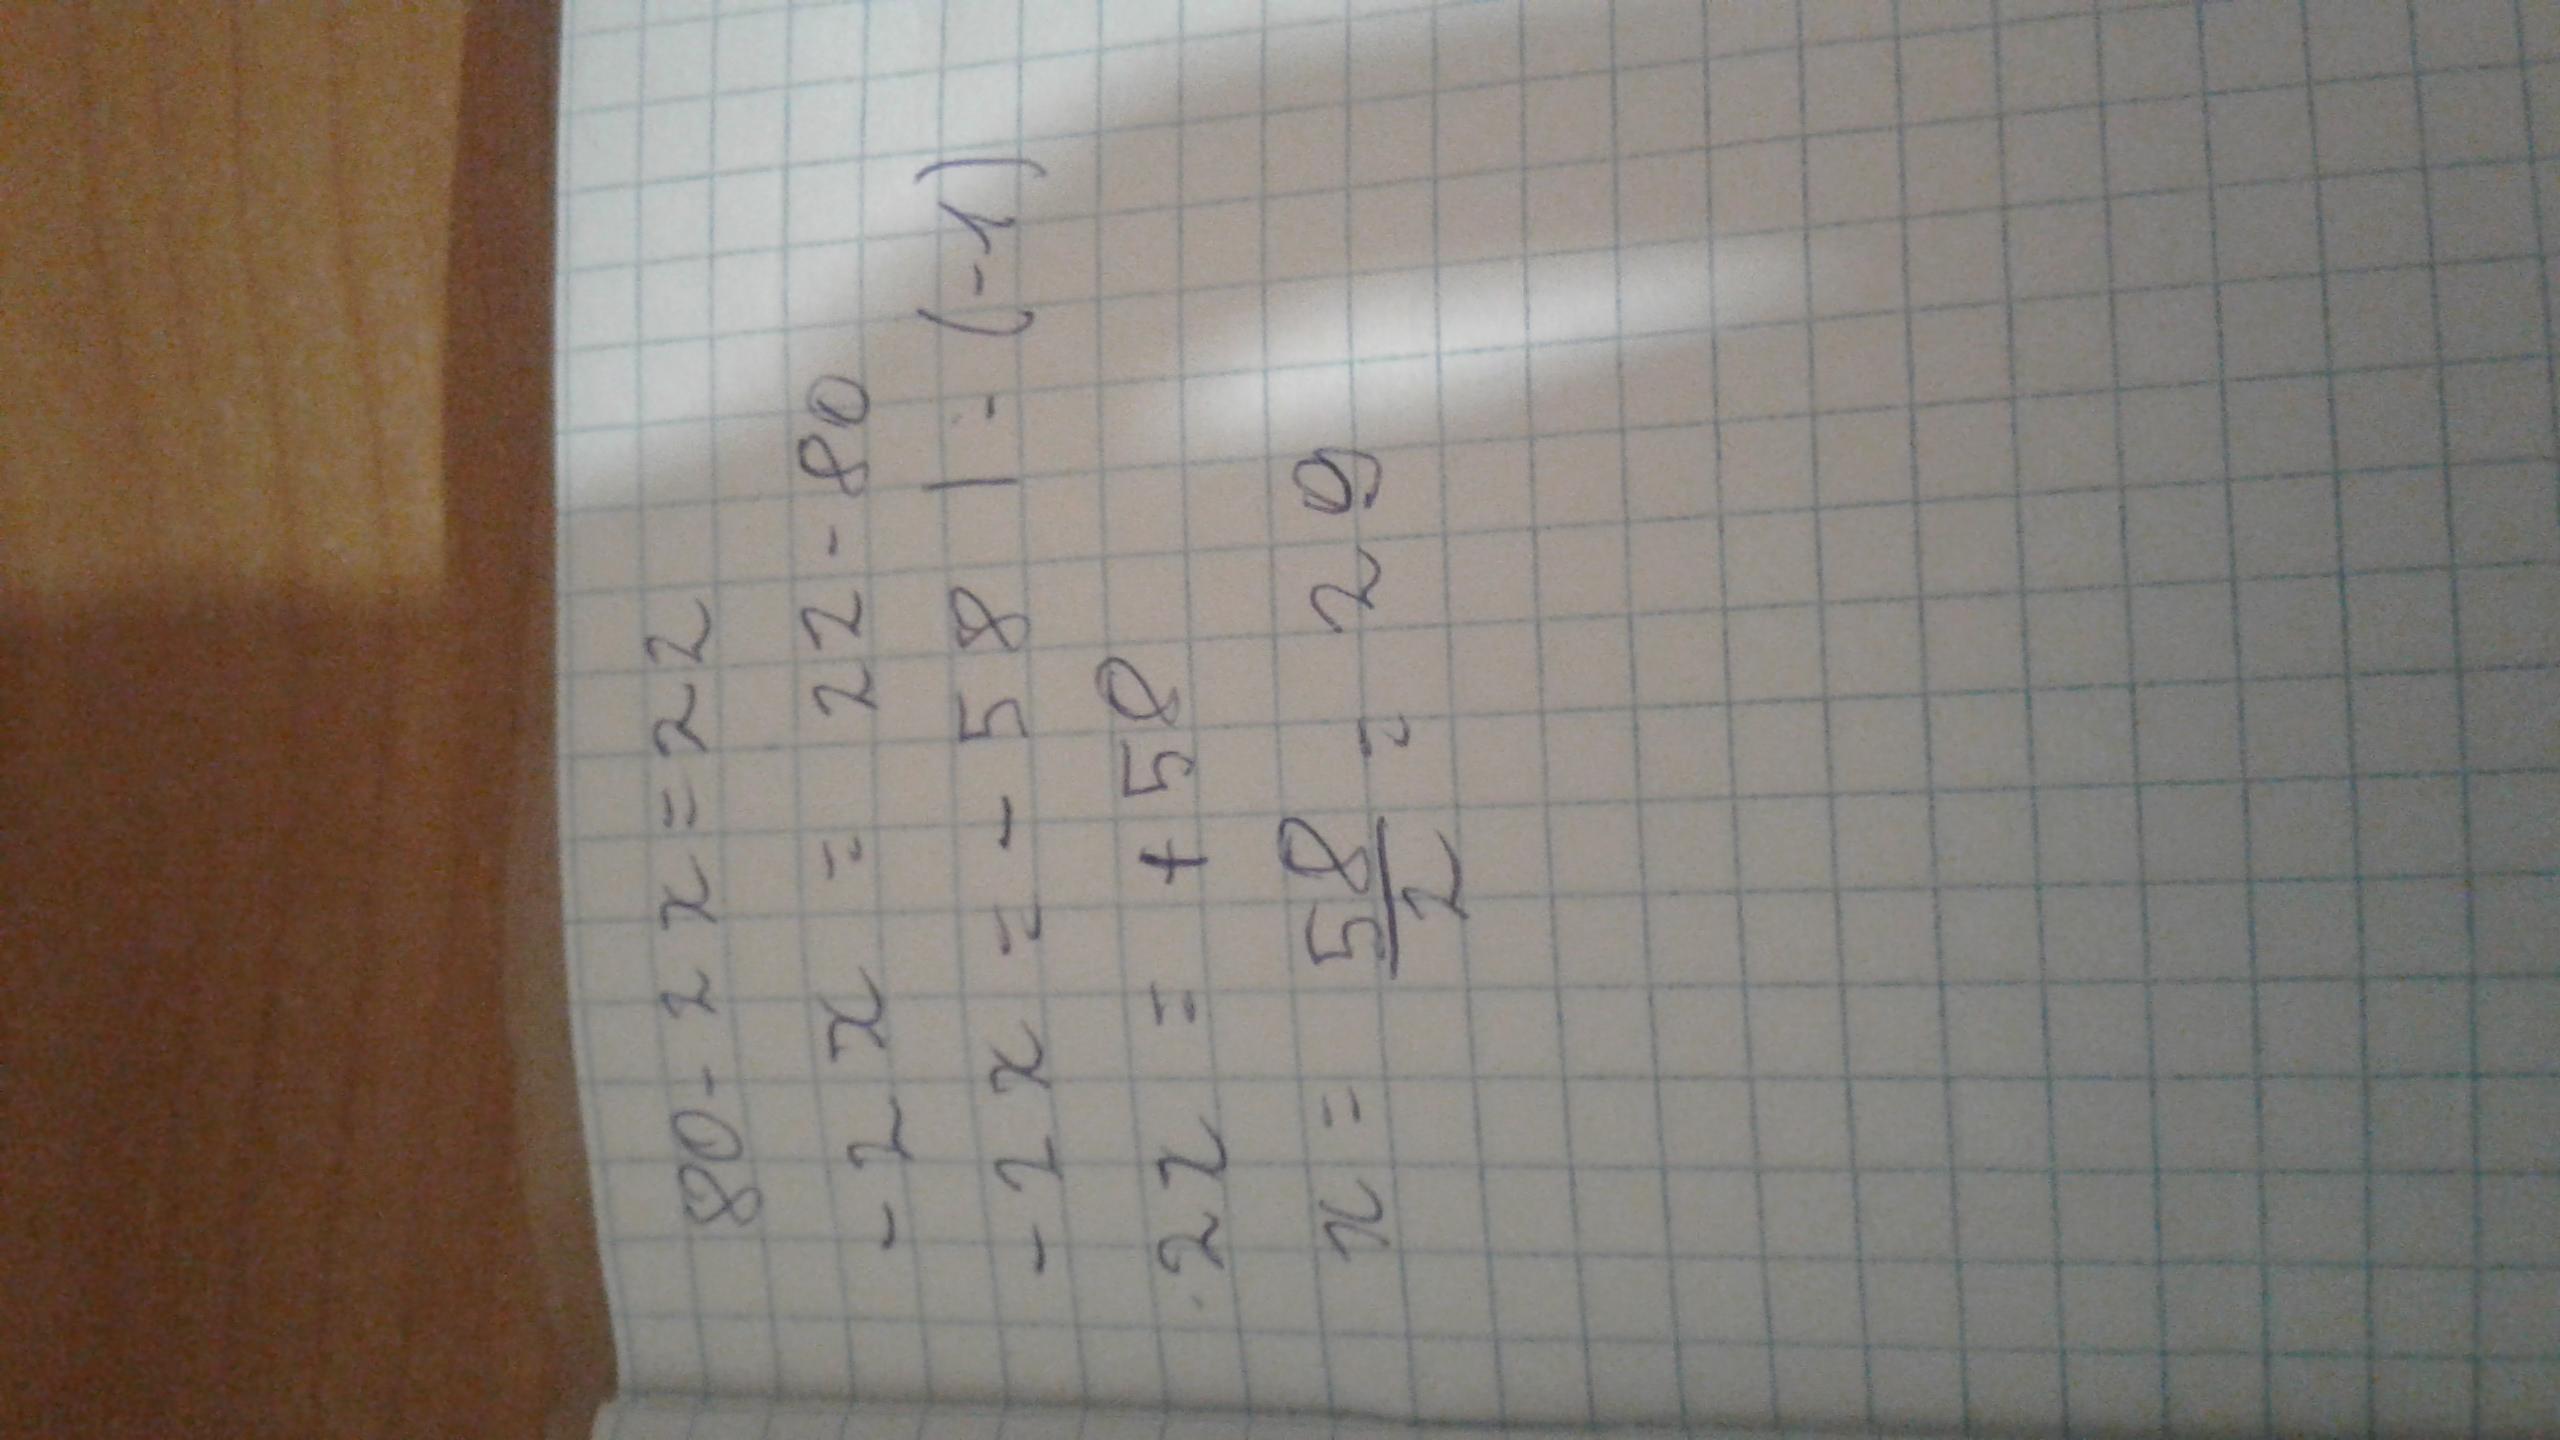 80-2x=22
-2x = 22-80
-2x = -58 |:(-1)
2x = +58
x = 58/2 = 29